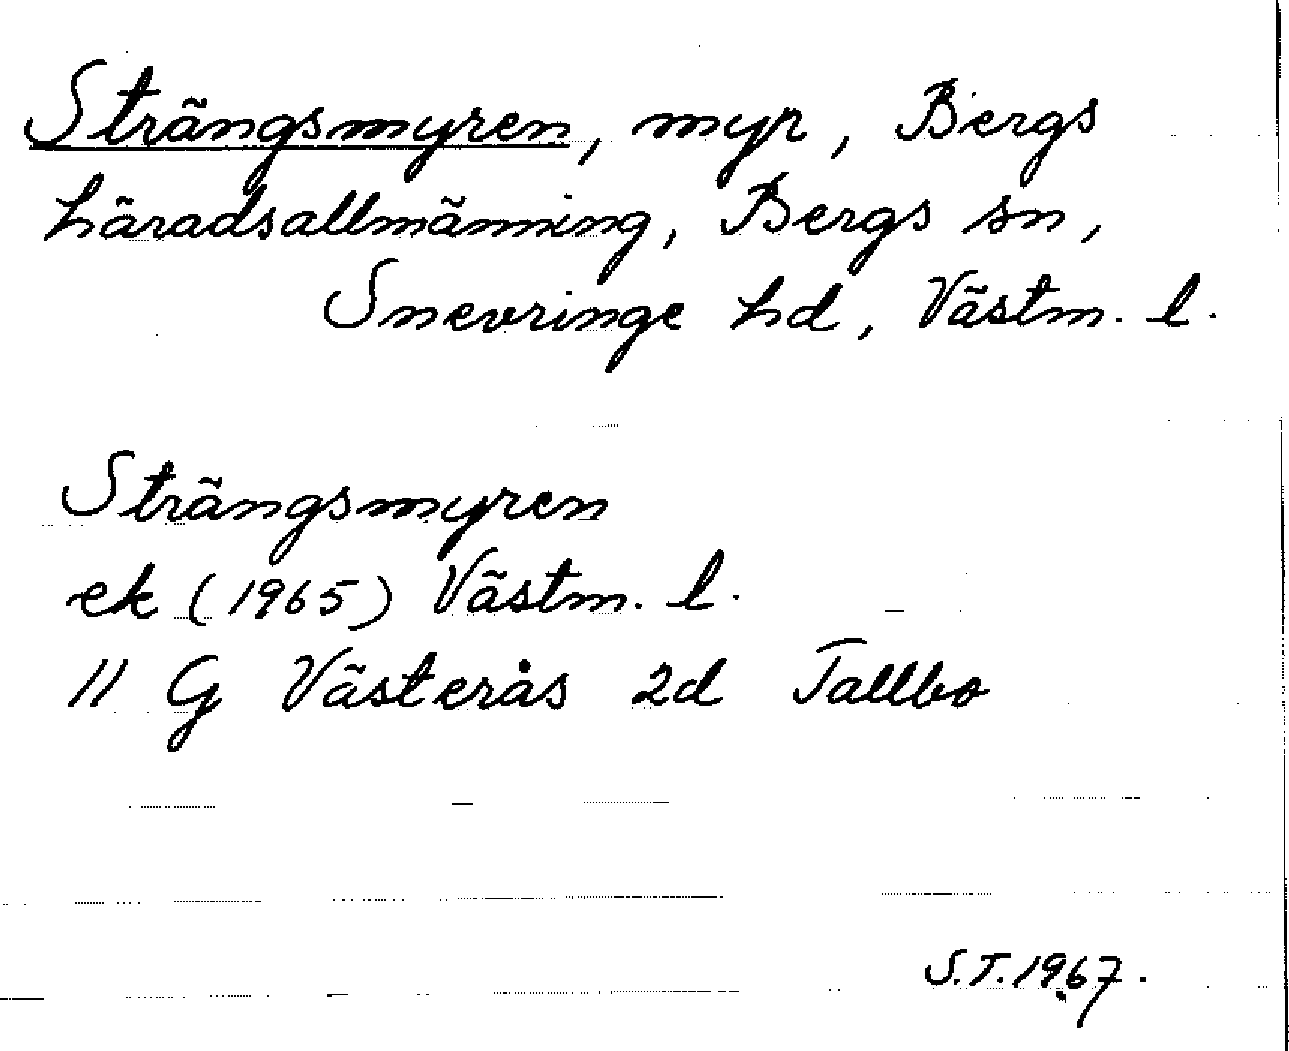 Strängsmyren, myr, Bergs
häradsallmänning, Bergs sn,
Snevringe hd, Västm. l.
Strängsmyren
ek (1965) Västm. l.
11 G Västerås 2d Tallbo
S.T. 1967.